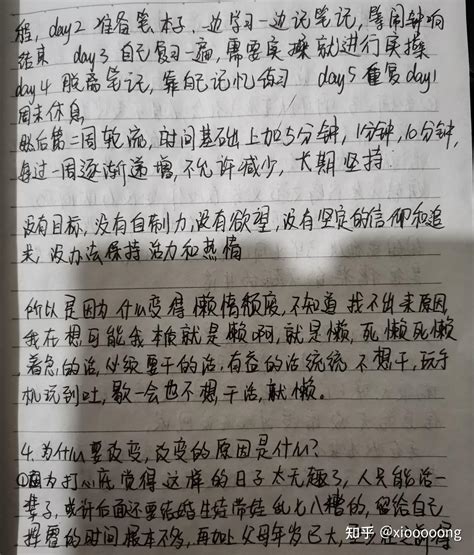 程, day2 准备笔本子, 边学习一边记笔记, 等闹钟响
结束 day3 自己复习一遍, 需要实操就进行实操
day4 脱离笔记, 靠自己记忆练习 day5 重复day1
周末休息
然后第二周轮流, 时间基础上加5分钟, 1分钟, 10分钟,
每过一周逐渐递增, 不允许减少, 长期坚持.
没有目标, 没有自制力, 没有欲望, 没有坚定的信仰和追
求, 没办法保持活力和热情
所以是因为什么变得懒惰颓废, 不知道 找不出来原因,
我在想可能我本质就是懒啊, 就是懒, 死懒死懒
着急的活, 必须要干的活, 有益的活统统 不想干, 玩手
机玩到吐, 歇一会也不想干活, 就懒。
4. 为什么要改变, 改变的原因是什么?
①因为打心底觉得这样的日子太无趣了, 人只能活一
辈子, 或许后面还要结婚生娃带娃乱七八糟的, 留给自己
挥霍的时间根本不多, 再加上父母年岁已大,
知乎 @xiooooong